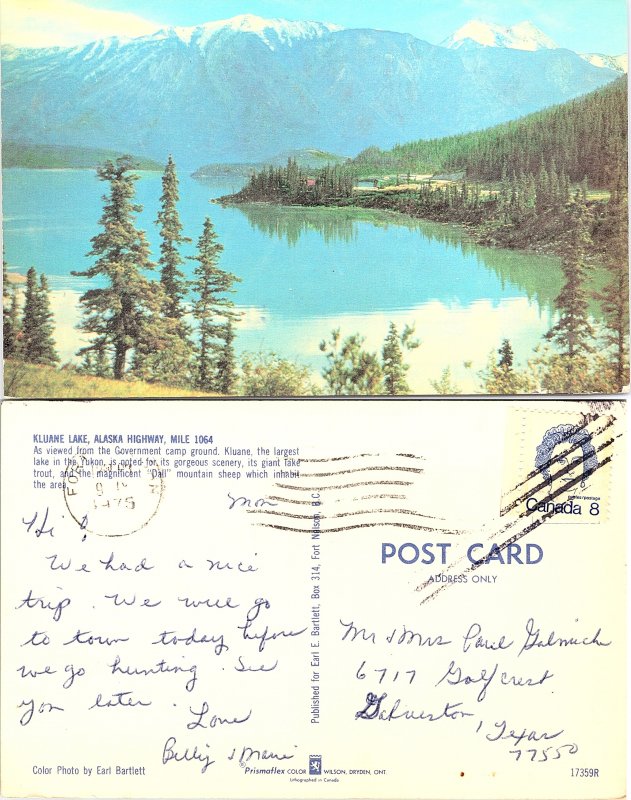 KLUANE LAKE, ALASKA HIGHWAY, MILE 1064
As viewed from the Government camp ground. Kluane, the largest
lake in the Yukon, is noted for its gorgeous scenery, its giant lake
trout, and the magnificent "Dall" mountain sheep which inhabit
the area.
FORT
1975
Mon
Hi!
We had a nice
trip. We will go
to town today before
we go hunting. See
you later.
Love
Billy & Marie
Color Photo by Earl Bartlett
Published for Earl E. Bartlett, Box 314, Fort Nelson, B.C.
Prismaflex COLOR WILSON, DRYDEN, ONT.
Lithographed in Canada
postes/postage
Canada 8
POST CARD
ADDRESS ONLY
Mr & Mrs Paul
6717 Golfcrest
Galveston, Texas
77550
17359R